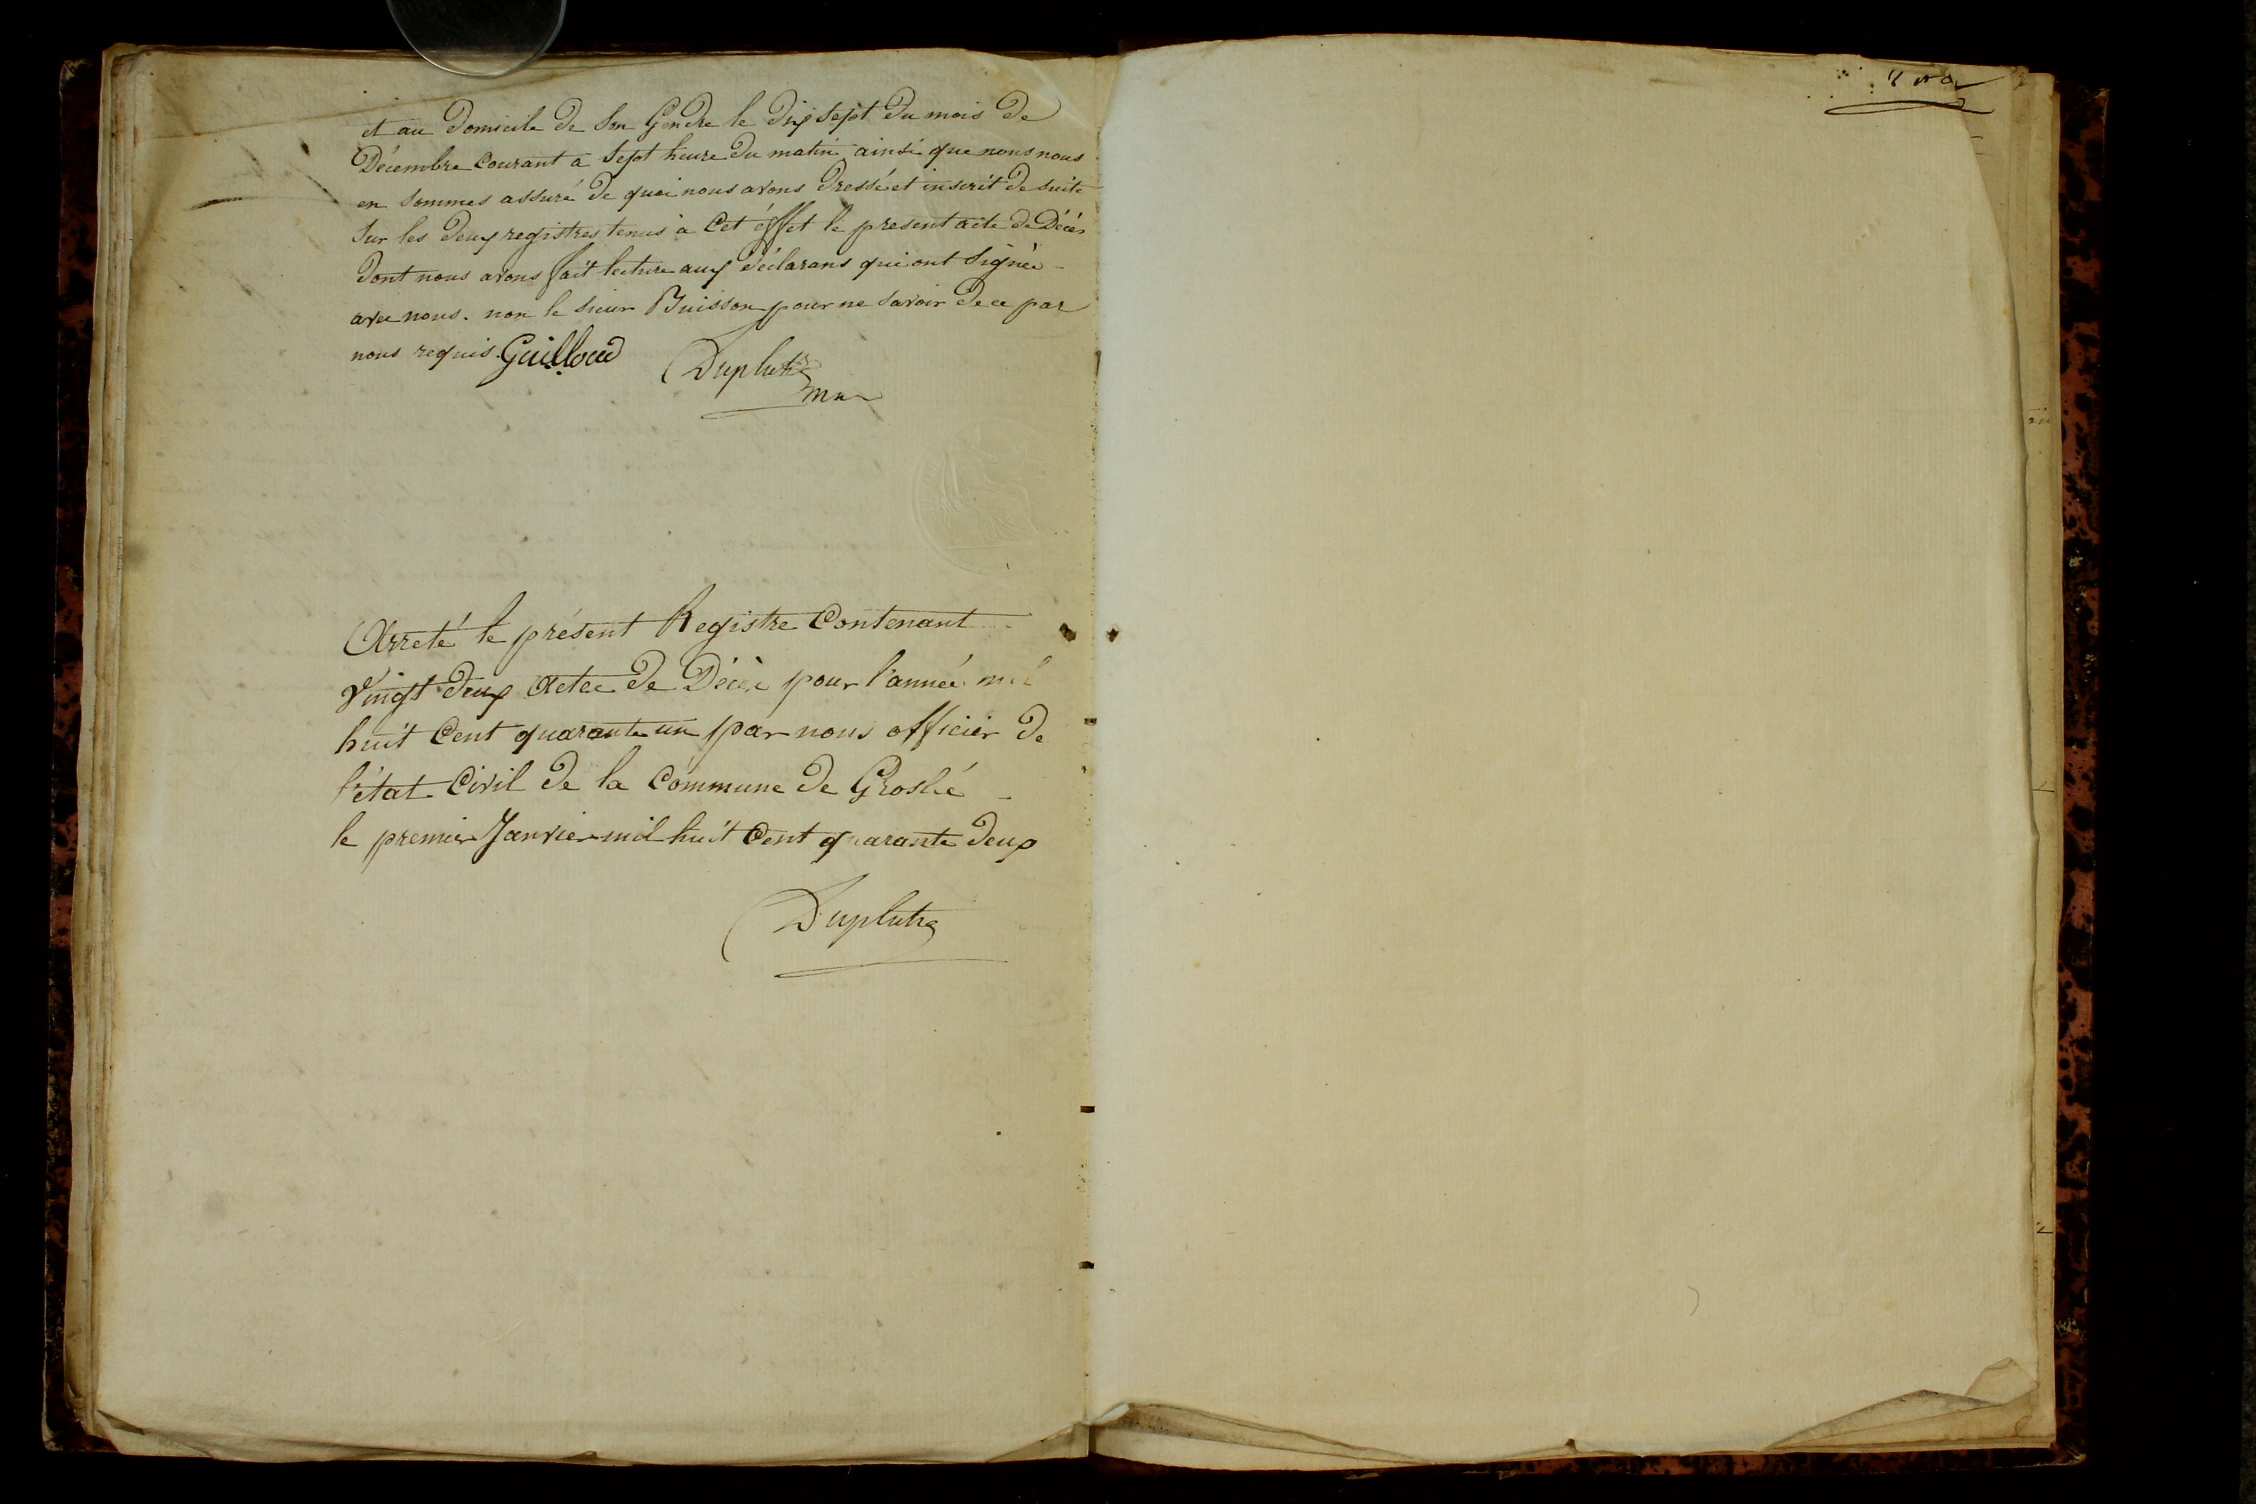 et au domicile de son Gendre le dix sept du mois de
Décembre Courant à Sept heure du matin ainsi que nous nous
en Sommes assuré de quoi nous avons dressé et inscrit de suite
Sur les deux registres tenus à Cet éffet le present acte de Décès
dont nous avons fait lecture aux déclarans qui ont Signée
avec nous. non le sieur Buisson pour ne savoir de ce par
nous requis. Guilloud Duplutre
Arreté le présent Registre Contenant
Vingt deux Actee de Décèe pour l'année mil
huit Cent quarante un par nous officier de
l'état Civil de la Commune de Groslée
le premier Janvier mil huit Cent quarante deux
Duplutre